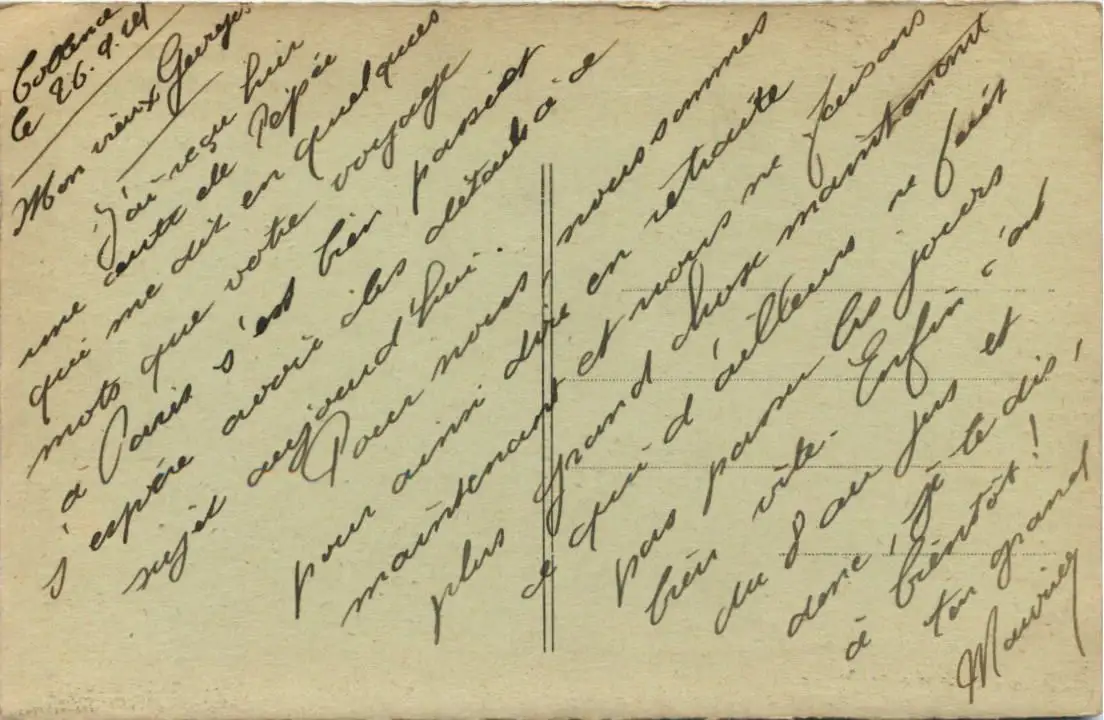 Coblence
le 26.9.24
Mon vieux Georges
J'ai reçu hier
une carte de Pépée
qui me dit en quelques
mots que votre voyage
à Paris s'est bien passé et
j'espère avoir des détails à ce
sujet aujourd'hui.
Pour nous, nous sommes
pour ainsi dire en retraite
maintenant et nous ne faisons
plus grand chose maintenant
ce qui d'ailleurs ne fait
pas passer les jours
bien vite. Enfin c'est
du 8 au jus et
donc je te dis
à bientôt!
ton grand
Maurice